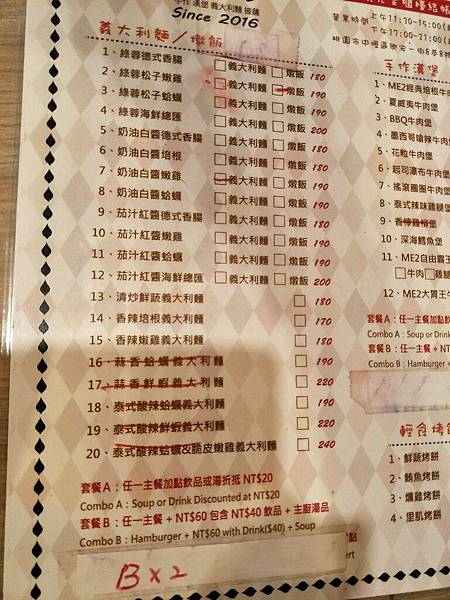 手作 漢堡 義大利麵 披薩
Since 2016
上午11:30-15:00
營業時間 下午17:00-21:00
義大利麵／燉飯
1、綠蓉德式香腸 □義大利麵 □燉飯 180
2、綠蓉松子嫩雞 □義大利麵 □燉飯 190
3、綠蓉松子蛤蠣 □義大利麵 □燉飯 190
4、綠蓉海鮮總匯 □義大利麵 □燉飯 200
5、奶油白醬德式香腸 □義大利麵 □燉飯 180
6、奶油白醬培根 □義大利麵 □燉飯 180
7、奶油白醬嫩雞 □義大利麵 □燉飯 190
8、奶油白醬蛤蠣 □義大利麵 □燉飯 190
9、茄汁紅醬德式香腸 □義大利麵 □燉飯 180
10、茄汁紅醬嫩雞 □義大利麵 □燉飯 190
11、茄汁紅醬蛤蠣 □義大利麵 □燉飯 190
12、茄汁紅醬海鮮總匯 □義大利麵 □燉飯 200
13、清炒鮮蔬義大利麵 □ 150
14、香辣培根義大利麵 □ 170
15、香辣嫩雞義大利麵 □ 180
16、蒜香蛤蠣義大利麵 □ 190
17、蒜香鮮蝦義大利麵 □ 220
18、泰式酸辣蛤蠣義大利麵 □ 190
19、泰式酸辣鮮蝦義大利麵 □ 220
20、泰式酸辣蛤蠣&脆皮嫩雞義大利麵 □ 240
套餐A：任一主餐加點飲品或湯折抵 NT$20
Combo A：Soup or Drink Discounted at NT$20
套餐B：任一主餐 + NT$60 包含 NT$40 飲品 + 主廚湯品
Combo B：Hamburger + NT$60 with Drink($40) + Soup
B x 2
手作漢堡
1、ME2經典培根牛肉
2、夏威夷牛肉堡
3、BBQ牛肉堡
4、墨西哥嗆辣牛肉
5、花粒牛肉堡
6、起司瀑布牛肉堡
7、搖滾圈圈牛肉堡
8、泰式辣味雞腿堡
9、香檸雞柳堡
10、深海鱈魚堡
11、ME2自由霸
□牛肉 □雞腿
12、ME2大胃王
套餐A：任一主餐加點飲
Combo A：Soup or Drink
套餐B：任一主餐 + NT
Combo B：Hamburger +
輕食烤餅
1、鮮蔬烤餅
2、鮪魚烤餅
3、燻雞烤餅
4、里肌烤餅